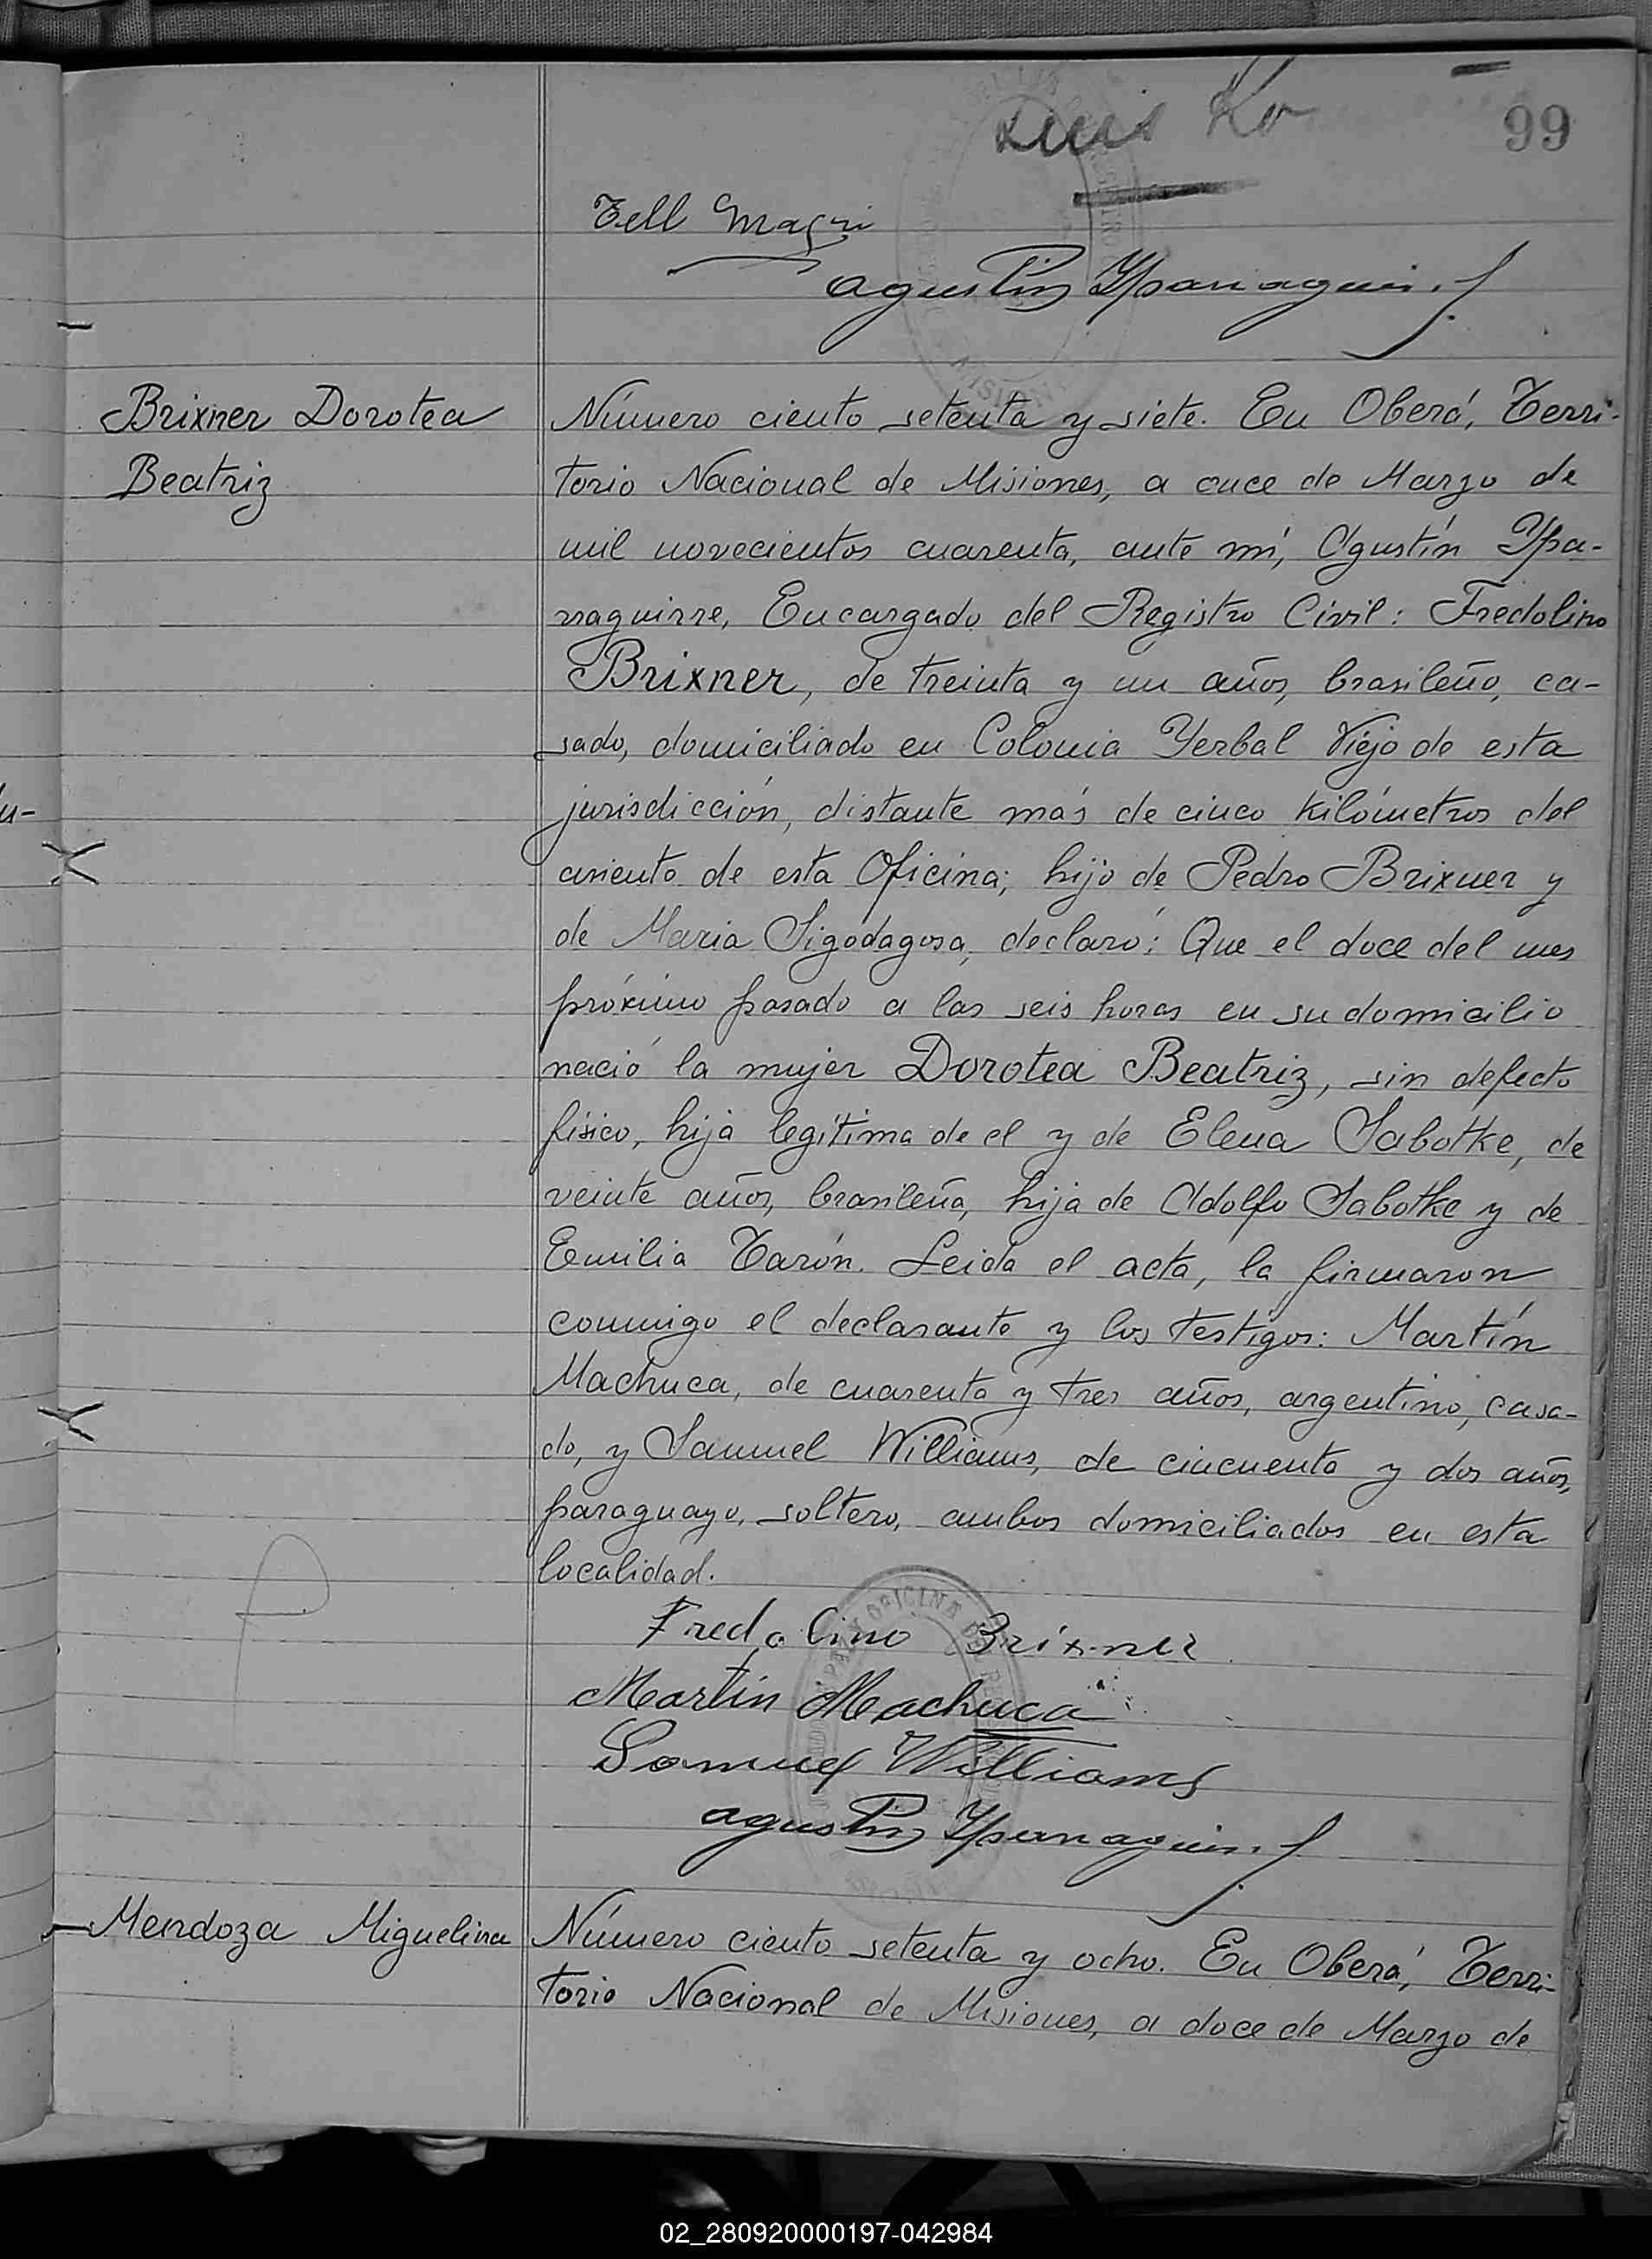 Luis Ko
99
Tell Magri
Agustín Yparraguirre
Brixner Dorotea
Beatriz
Número ciento setenta y siete. En Oberá, Terri-
torio Nacional de Misiones, a once de Marzo de
mil novecientos cuarenta, ante mí, Agustín Ypa-
rraguirre, Encargado del Registro Civil: Fredolino
Brixner, de treinta y un años, brasileño, ca-
sado, domiciliado en Colonia Yerbal Viejo de esta
jurisdicción, distante más de cinco kilómetros del
asiento de esta Oficina; hijo de Pedro Brixner y
de Maria Sigodagosa, declaró: Que el doce del mes
próximo pasado a las seis horas en su domicilio
nació la mujer Dorotea Beatriz, sin defecto
físico, hija legítima de el y de Elena Sabotke, de
veinte años, brasileña, hija de Adolfo Sabotke y de
Emilia Tarón. Leida el acta, la firmaron
conmigo el declarante y los testigos: Martín
Machuca, de cuarenta y tres años, argentino, casa-
do, y Samuel Williams, de cincuenta y dos años,
paraguayo, soltero, ambos domiciliados en esta
localidad.
Fredolino Brixner
Martín Machuca
Samuel Williams
Agustín Yparraguirre
Mendoza Miguelina
Número ciento setenta y ocho. En Oberá, Terri-
torio Nacional de Misiones, a doce de Marzo de
02_280920000197-042984